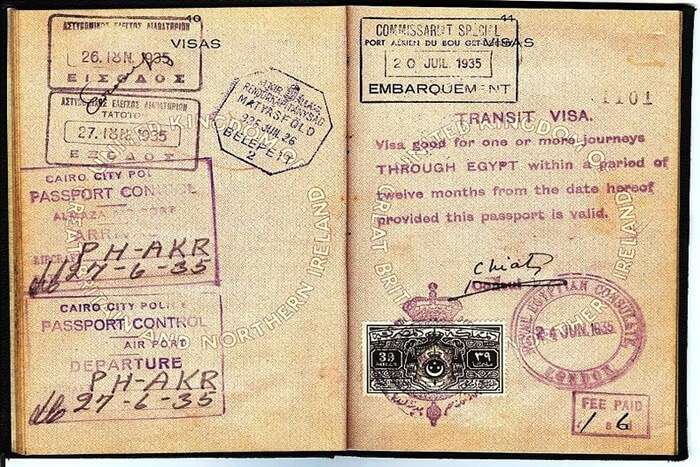 10
VISAS
ΑΣΤΥΝΟΜΙΚΟΣ ΕΛΕΓΧΟΣ ΔΙΑΒΑΤΗΡΙΩΝ
26. ΙΟΥΝ. 1935
ΕΙΣΟΔΟΣ
ΑΣΤΥΝΟΜΙΚΟΣ ΕΛΕΓΧΟΣ ΔΙΑΒΑΤΗΡΙΩΝ
ΤΑΤΟΪΟΥ
27. ΙΟΥΝ. 1935
ΕΞΟΔΟΣ
MÁTYÁSFÖLD
935 JUN. 26
BELÉPETT
2
CAIRO CITY POL
PASSPORT CONTROL
PH-AKR
27-6-35
CAIRO CITY POLICE
PASSPORT CONTROL
AIR PORT
DEPARTURE
PH-AKR
27-6-35
NORTHERN IRELAND
11
VISAS
COMMISSARIAT SPECIAL
PORT AERIEN DU BOU GET-
20 JUIL. 1935
EMBARQUEMENT
1101
TRANSIT VISA.
Visa good for one or more journeys
THROUGH EGYPT within a period of
twelve months from the date hereof
provided this passport is valid.
UNITED KINGDOM OF
GREAT BRIT
Consul
ROYAL EGYPTIAN CONSULATE
24 JUN. 1935
LONDON
39 ٣٩
FEE PAID
1 8 6